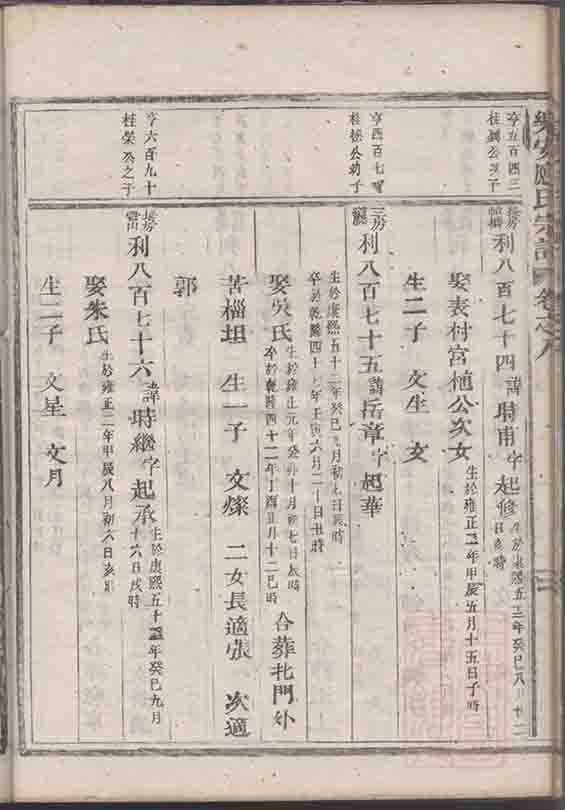 應氏宗譜 卷之八
亨五百四三
桂 公之子
長房 利八百七十四 諱時甫字起修 生於康熙五十二年癸巳八月十二
日亥時
娶表村宮植公次女 生於雍正二年甲辰五月十五日子時
生二子 文生 文
亨四百七
桂松公幼子
三房 利八百七十五 諱岳章字起華
生於康熙五十二年癸巳九月初七日 時
卒於乾隆四十七年壬寅六月二十日丑時
娶吳氏 生於雍正元年癸卯十月初七日 時
卒於乾隆四十二年丁酉五月十二巳時 合葬北門外
苦櫧坦 生一子 文燦 二女長適張 次適
郭
亨六百九十
桂榮公之子
長房 利八百七十六 諱時繼字起承 生於康熙五十二年癸巳九月
十六日戌時
娶朱氏 生於雍正二年甲辰八月初六日亥時
生二子 文星 文月